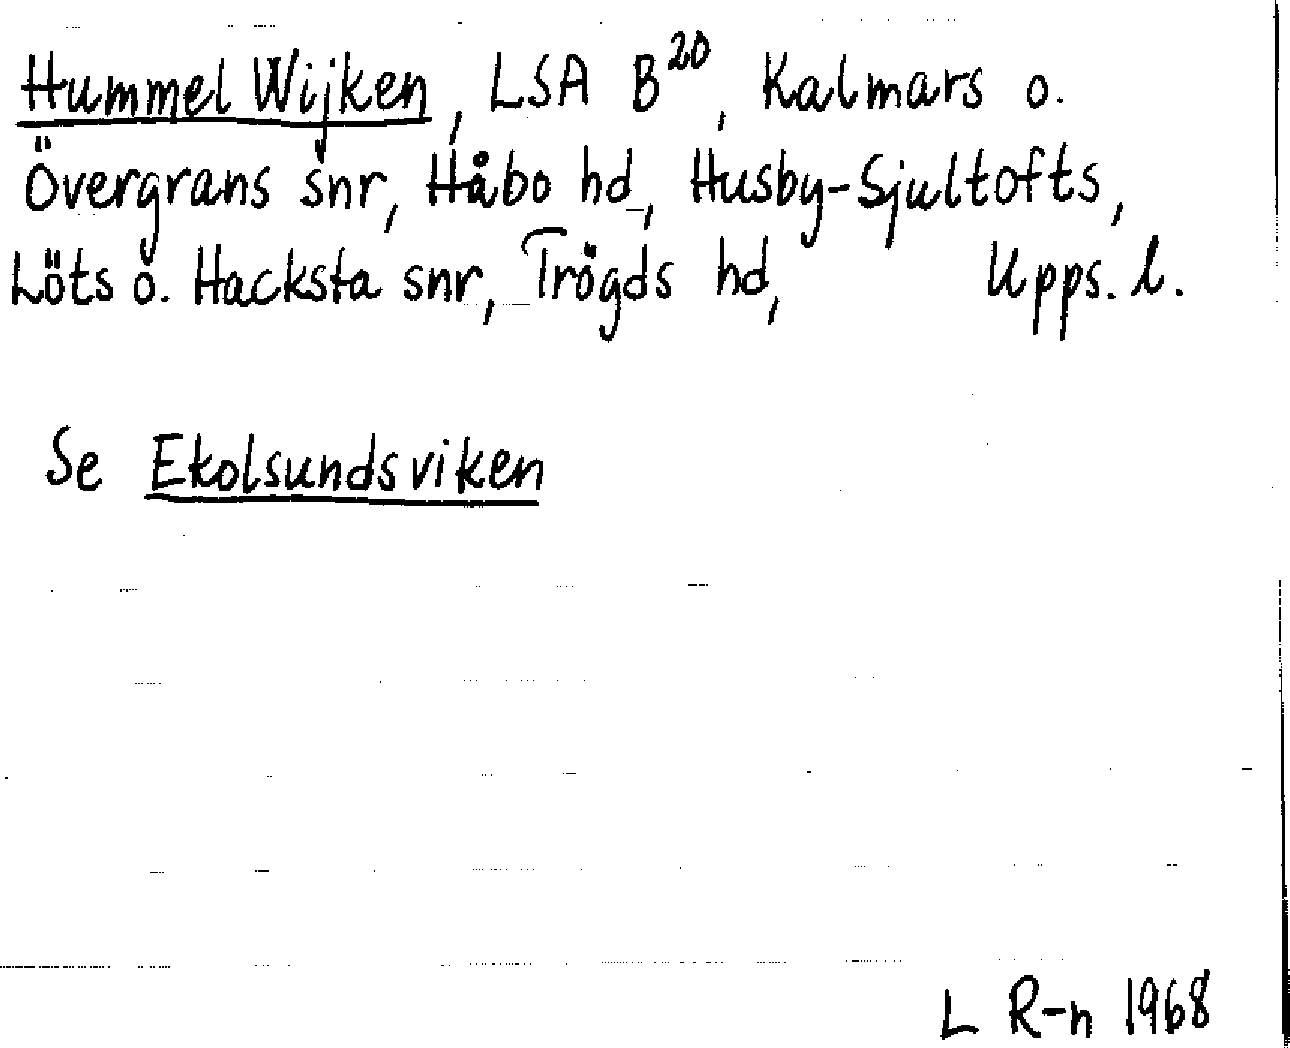 Hummel Wijken, LSA B20, Kalmars o.
Övergrans snr, Håbo hd, Husby-Sjultofts,
Löts o. Hacksta snr, Trögds hd, Upps. l.
Se Ekolsundsviken
L R-n 1968